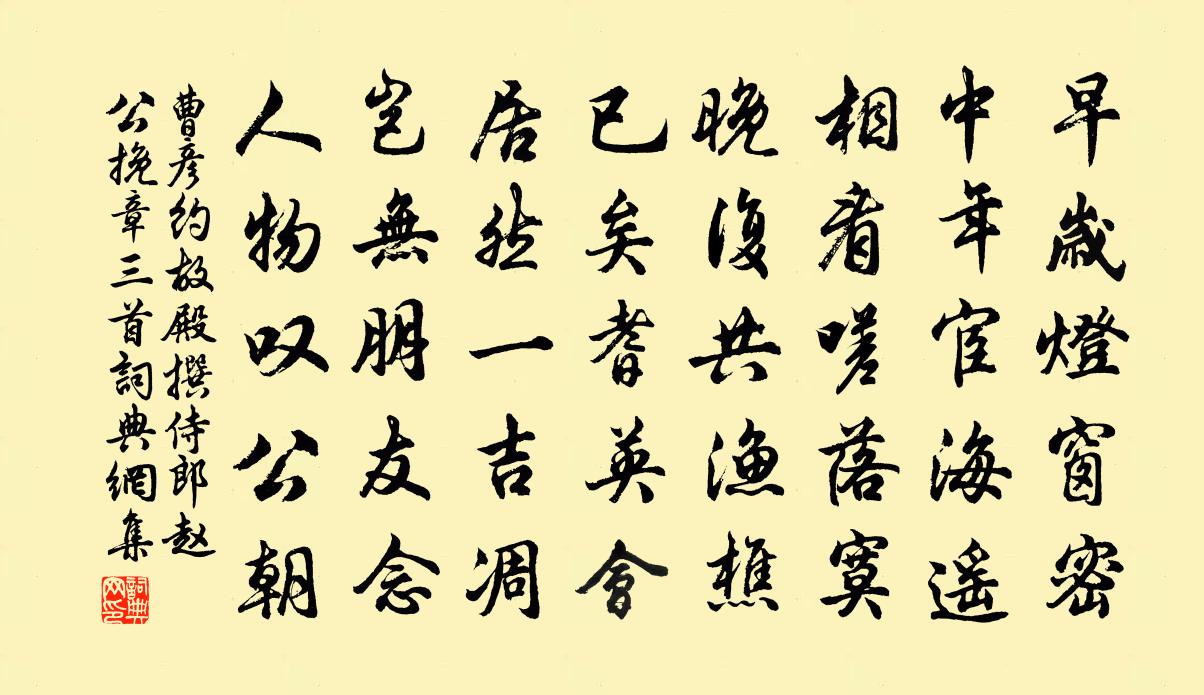 早歲燈窗密
中年宦海遥
相看嗟落寞
晚復共漁樵
已矣耆英會
居然一吉凋
豈無朋友念
人物叹公朝
曹彦約故殿撰侍郎赵
公挽章三首詞典網集
詞典